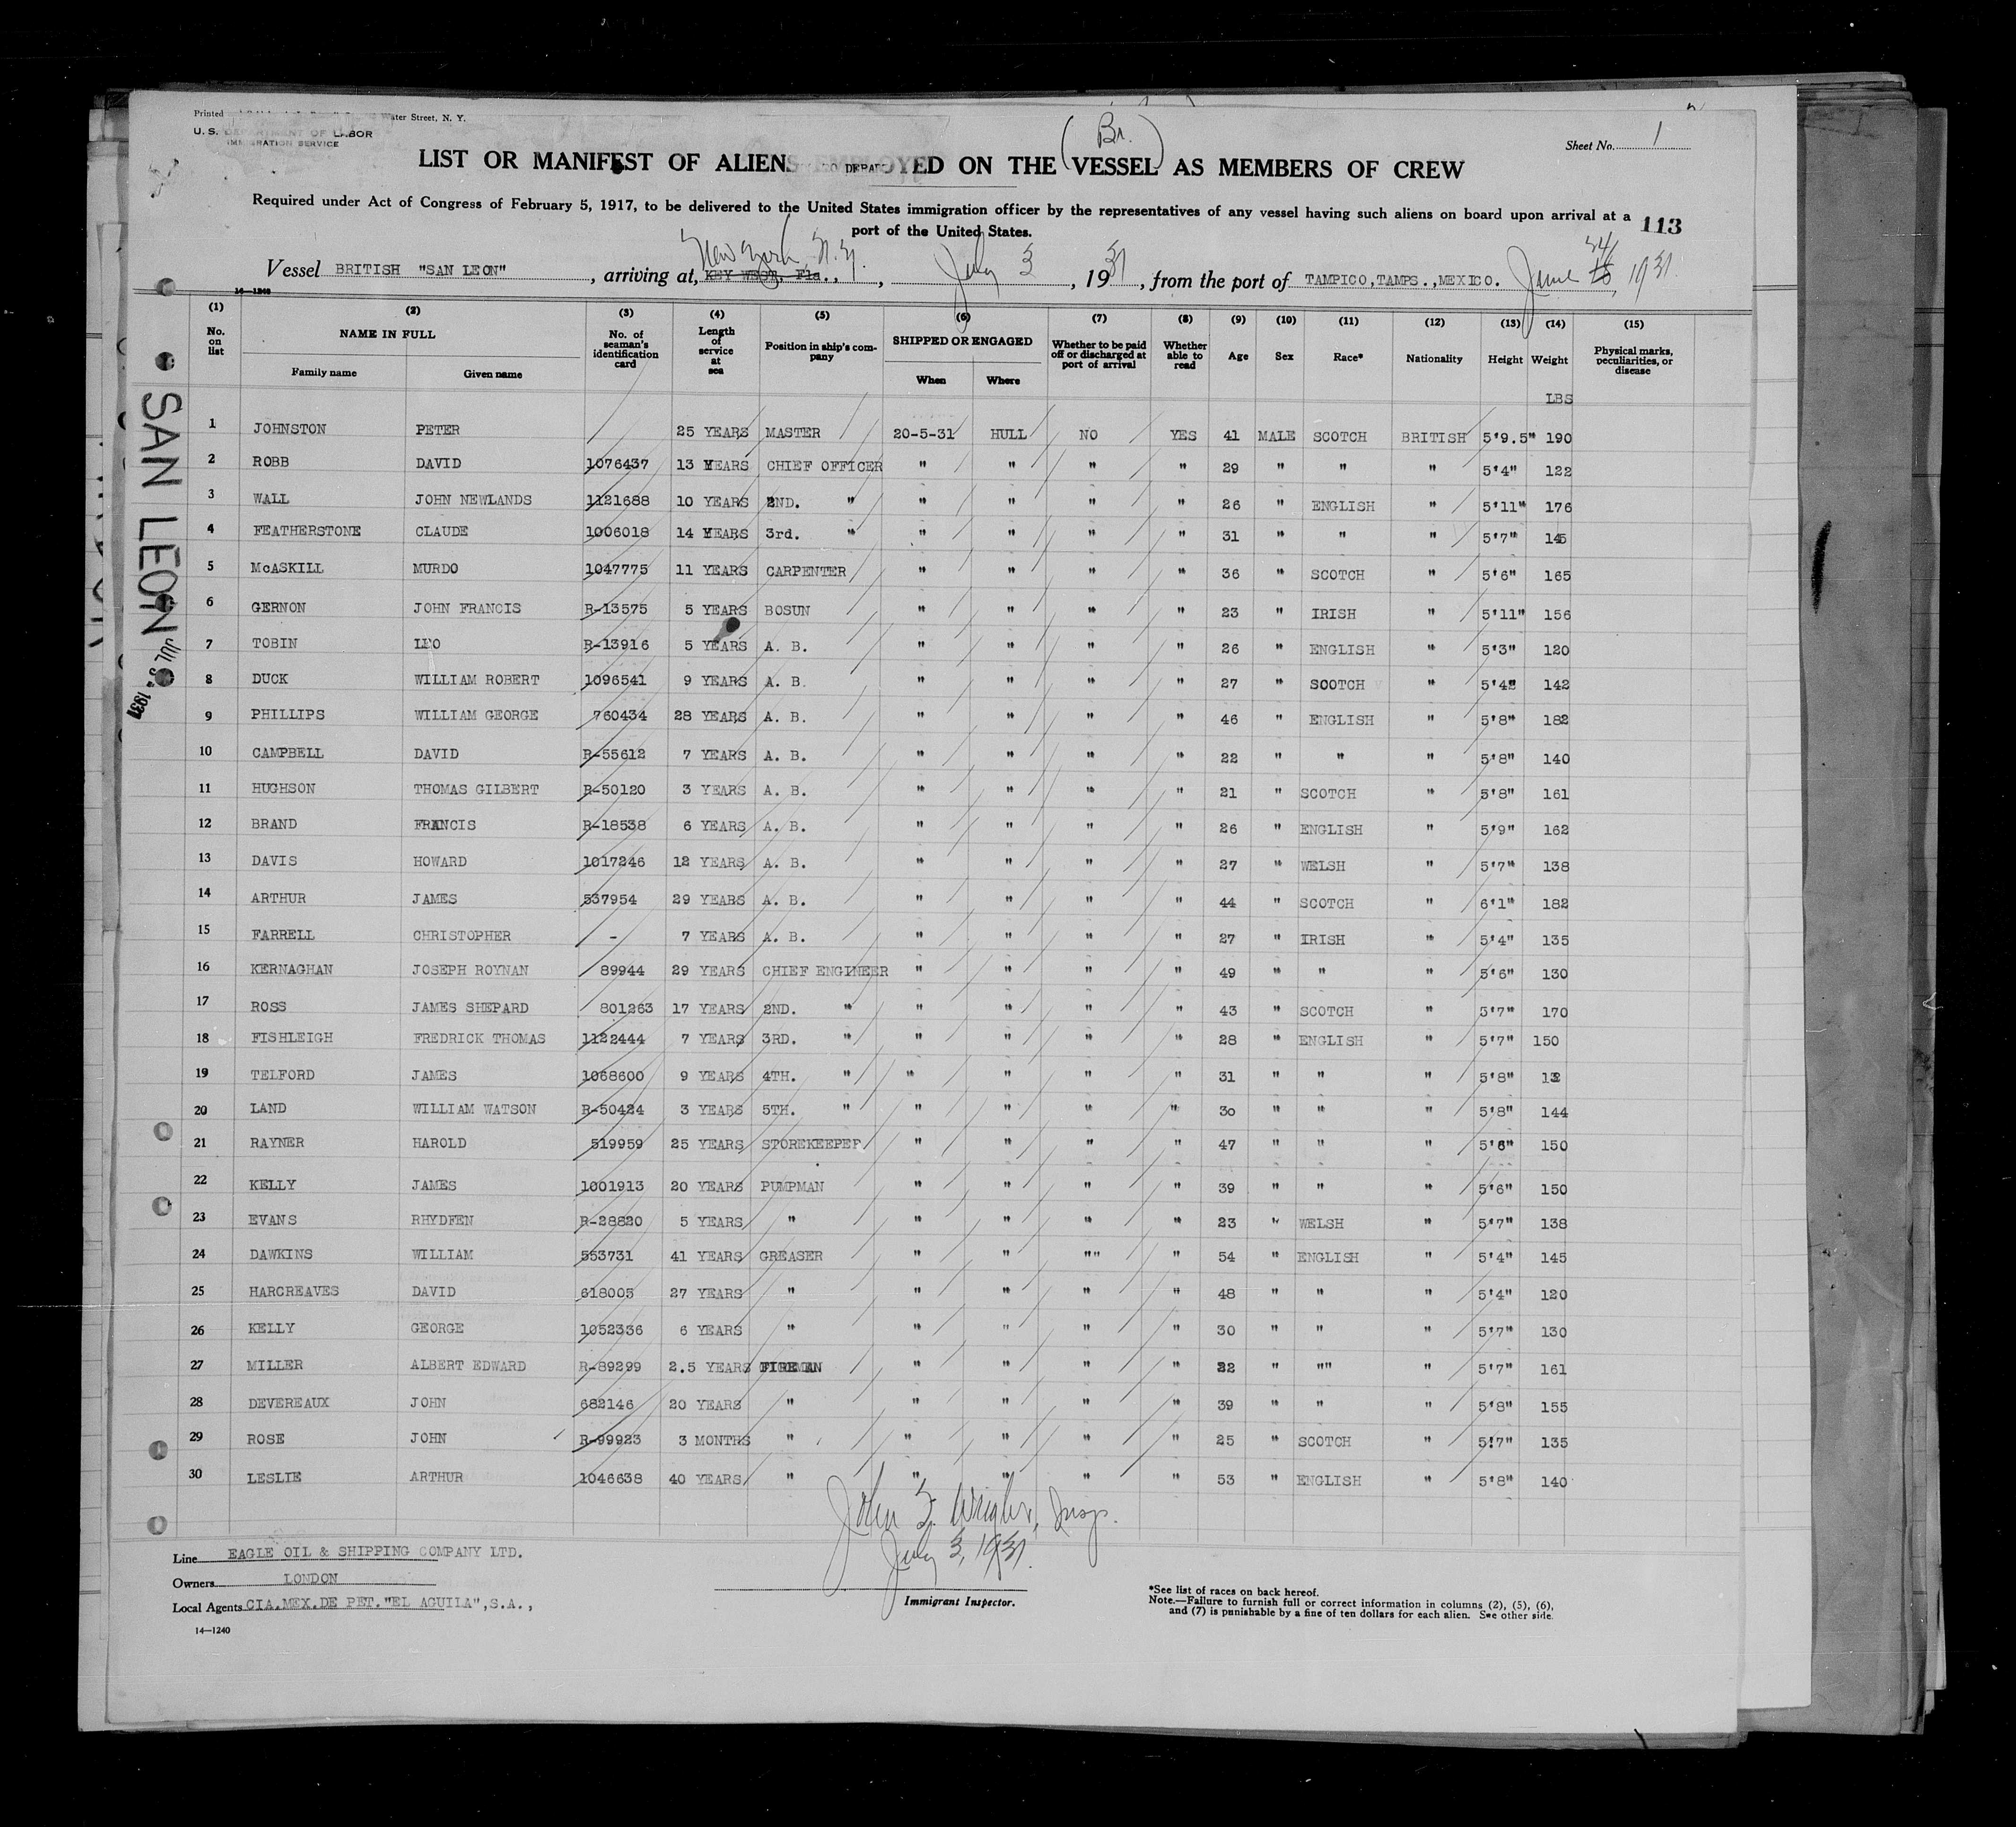 Printed ater Street, N. Y.
U. S. DEPARTMENT OF LABOR
IMMIGRATION SERVICE
(Br.)
Sheet No. 1
LIST OR MANIFEST OF ALIENS EMPLOYED ON THE VESSEL AS MEMBERS OF CREW
Required under Act of Congress of February 5, 1917, to be delivered to the United States immigration officer by the representatives of any vessel having such aliens on board upon arrival at a
port of the United States.
113
New York, N.Y. 24
Vessel BRITISH "SAN LEON", arriving at, KEY WEST, Fla., July 3, 1931, from the port of TAMPICO,TAMPS.,MEXICO. June 1931
14—1240
(1) (2) (3) (4) (5) (6) (7) (8) (9) (10) (11) (12) (13) (14) (15)
No. on list NAME IN FULL Family name Given name No. of seaman's identification card Length of service at sea Position in ship's company SHIPPED OR ENGAGED When Where Whether to be paid off or discharged at port of arrival Whether able to read Age Sex Race* Nationality Height Weight Physical marks, peculiarities, or disease
LBS
1 JOHNSTON PETER 25 YEARS MASTER 20-5-31 HULL NO YES 41 MALE SCOTCH BRITISH 5'9.5" 190
2 ROBB DAVID 1076437 13 YEARS CHIEF OFFICER " " " " 29 " " " 5'4" 122
3 WALL JOHN NEWLANDS 1121688 10 YEARS 2ND. " " " " " 26 " ENGLISH " 5'11" 176
4 FEATHERSTONE CLAUDE 1006018 14 YEARS 3rd. " " " " " 31 " " " 5'7" 145
5 McASKILL MURDO 1047775 11 YEARS CARPENTER " " " " 36 " SCOTCH " 5'6" 165
6 GERNON JOHN FRANCIS R-13575 5 YEARS BOSUN " " " " 23 " IRISH " 5'11" 156
7 TOBIN LEO R-13916 5 YEARS A. B. " " " " 26 " ENGLISH " 5'3" 120
8 DUCK WILLIAM ROBERT 1096541 9 YEARS A. B. " " " " 27 " SCOTCH " 5'4" 142
9 PHILLIPS WILLIAM GEORGE 760434 28 YEARS A. B. " " " " 46 " ENGLISH " 5'8" 182
10 CAMPBELL DAVID R-55612 7 YEARS A. B. " " " " 22 " " " 5'8" 140
11 HUGHSON THOMAS GILBERT R-50120 3 YEARS A. B. " " " " 21 " SCOTCH " 5'8" 161
12 BRAND FRANCIS R-18538 6 YEARS A. B. " " " " 26 " ENGLISH " 5'9" 162
13 DAVIS HOWARD 1017246 12 YEARS A. B. " " " " 27 " WELSH " 5'7" 138
14 ARTHUR JAMES 537954 29 YEARS A. B. " " " " 44 " SCOTCH " 6'1" 182
15 FARRELL CHRISTOPHER - 7 YEARS A. B. " " " " 27 " IRISH " 5'4" 135
16 KERNAGHAN JOSEPH ROYNAN 89944 29 YEARS CHIEF ENGINEER " " " " 49 " " " 5'6" 130
17 ROSS JAMES SHEPARD 801263 17 YEARS 2ND. " " " " " 43 " SCOTCH " 5'7" 170
18 FISHLEIGH FREDRICK THOMAS 1122444 7 YEARS 3RD. " " " " " 28 " ENGLISH " 5'7" 150
19 TELFORD JAMES 1068600 9 YEARS 4TH. " " " " " 31 " " " 5'8"
20 LAND WILLIAM WATSON R-50424 3 YEARS 5TH. " " " " " 30 " " " 5'8" 144
21 RAYNER HAROLD 519959 25 YEARS STOREKEEPER " " " " 47 " " " 5'6" 150
22 KELLY JAMES 1001913 20 YEARS PUMPMAN " " " " 39 " " " 5'6" 150
23 EVANS RHYDFEN R-28820 5 YEARS " " " " " 23 " WELSH " 5'7" 138
24 DAWKINS WILLIAM 553731 41 YEARS GREASER " " "" " 54 " ENGLISH " 5'4" 145
25 HARGREAVES DAVID 618005 27 YEARS " " " " " 48 " " " 5'4" 120
26 KELLY GEORGE 1052336 6 YEARS " " " " " 30 " " " 5'7" 130
27 MILLER ALBERT EDWARD R-89299 2.5 YEARS FIREMAN " " " " 22 " "" " 5'7" 161
28 DEVEREAUX JOHN 682146 20 YEARS " " " " " 39 " " " 5'8" 155
29 ROSE JOHN R-99923 3 MONTHS " " " " " 25 " SCOTCH " 5'7" 135
30 LESLIE ARTHUR 1046638 40 YEARS " " " " " 53 " ENGLISH " 5'8" 140
SAN LEON
JUL 3 1931
John Insp.
July 3, 1931.
Immigrant Inspector.
Line EAGLE OIL & SHIPPING COMPANY LTD.
Owners LONDON
Local Agents CIA.MEX.DE PET."EL AGUILA",S.A.,
14—1240
*See list of races on back hereof.
Note.—Failure to furnish full or correct information in columns (2), (5), (6),
and (7) is punishable by a fine of ten dollars for each alien. See other side.